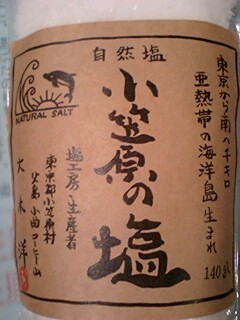 自然塩
小笠原の塩
東京から南へ千キロ
亜熱帯の海洋島生まれ
140g入
NATURAL SALT
塩工房・生産者
東京都小笠原村
父島 小曲コーヒー山
大木 洋